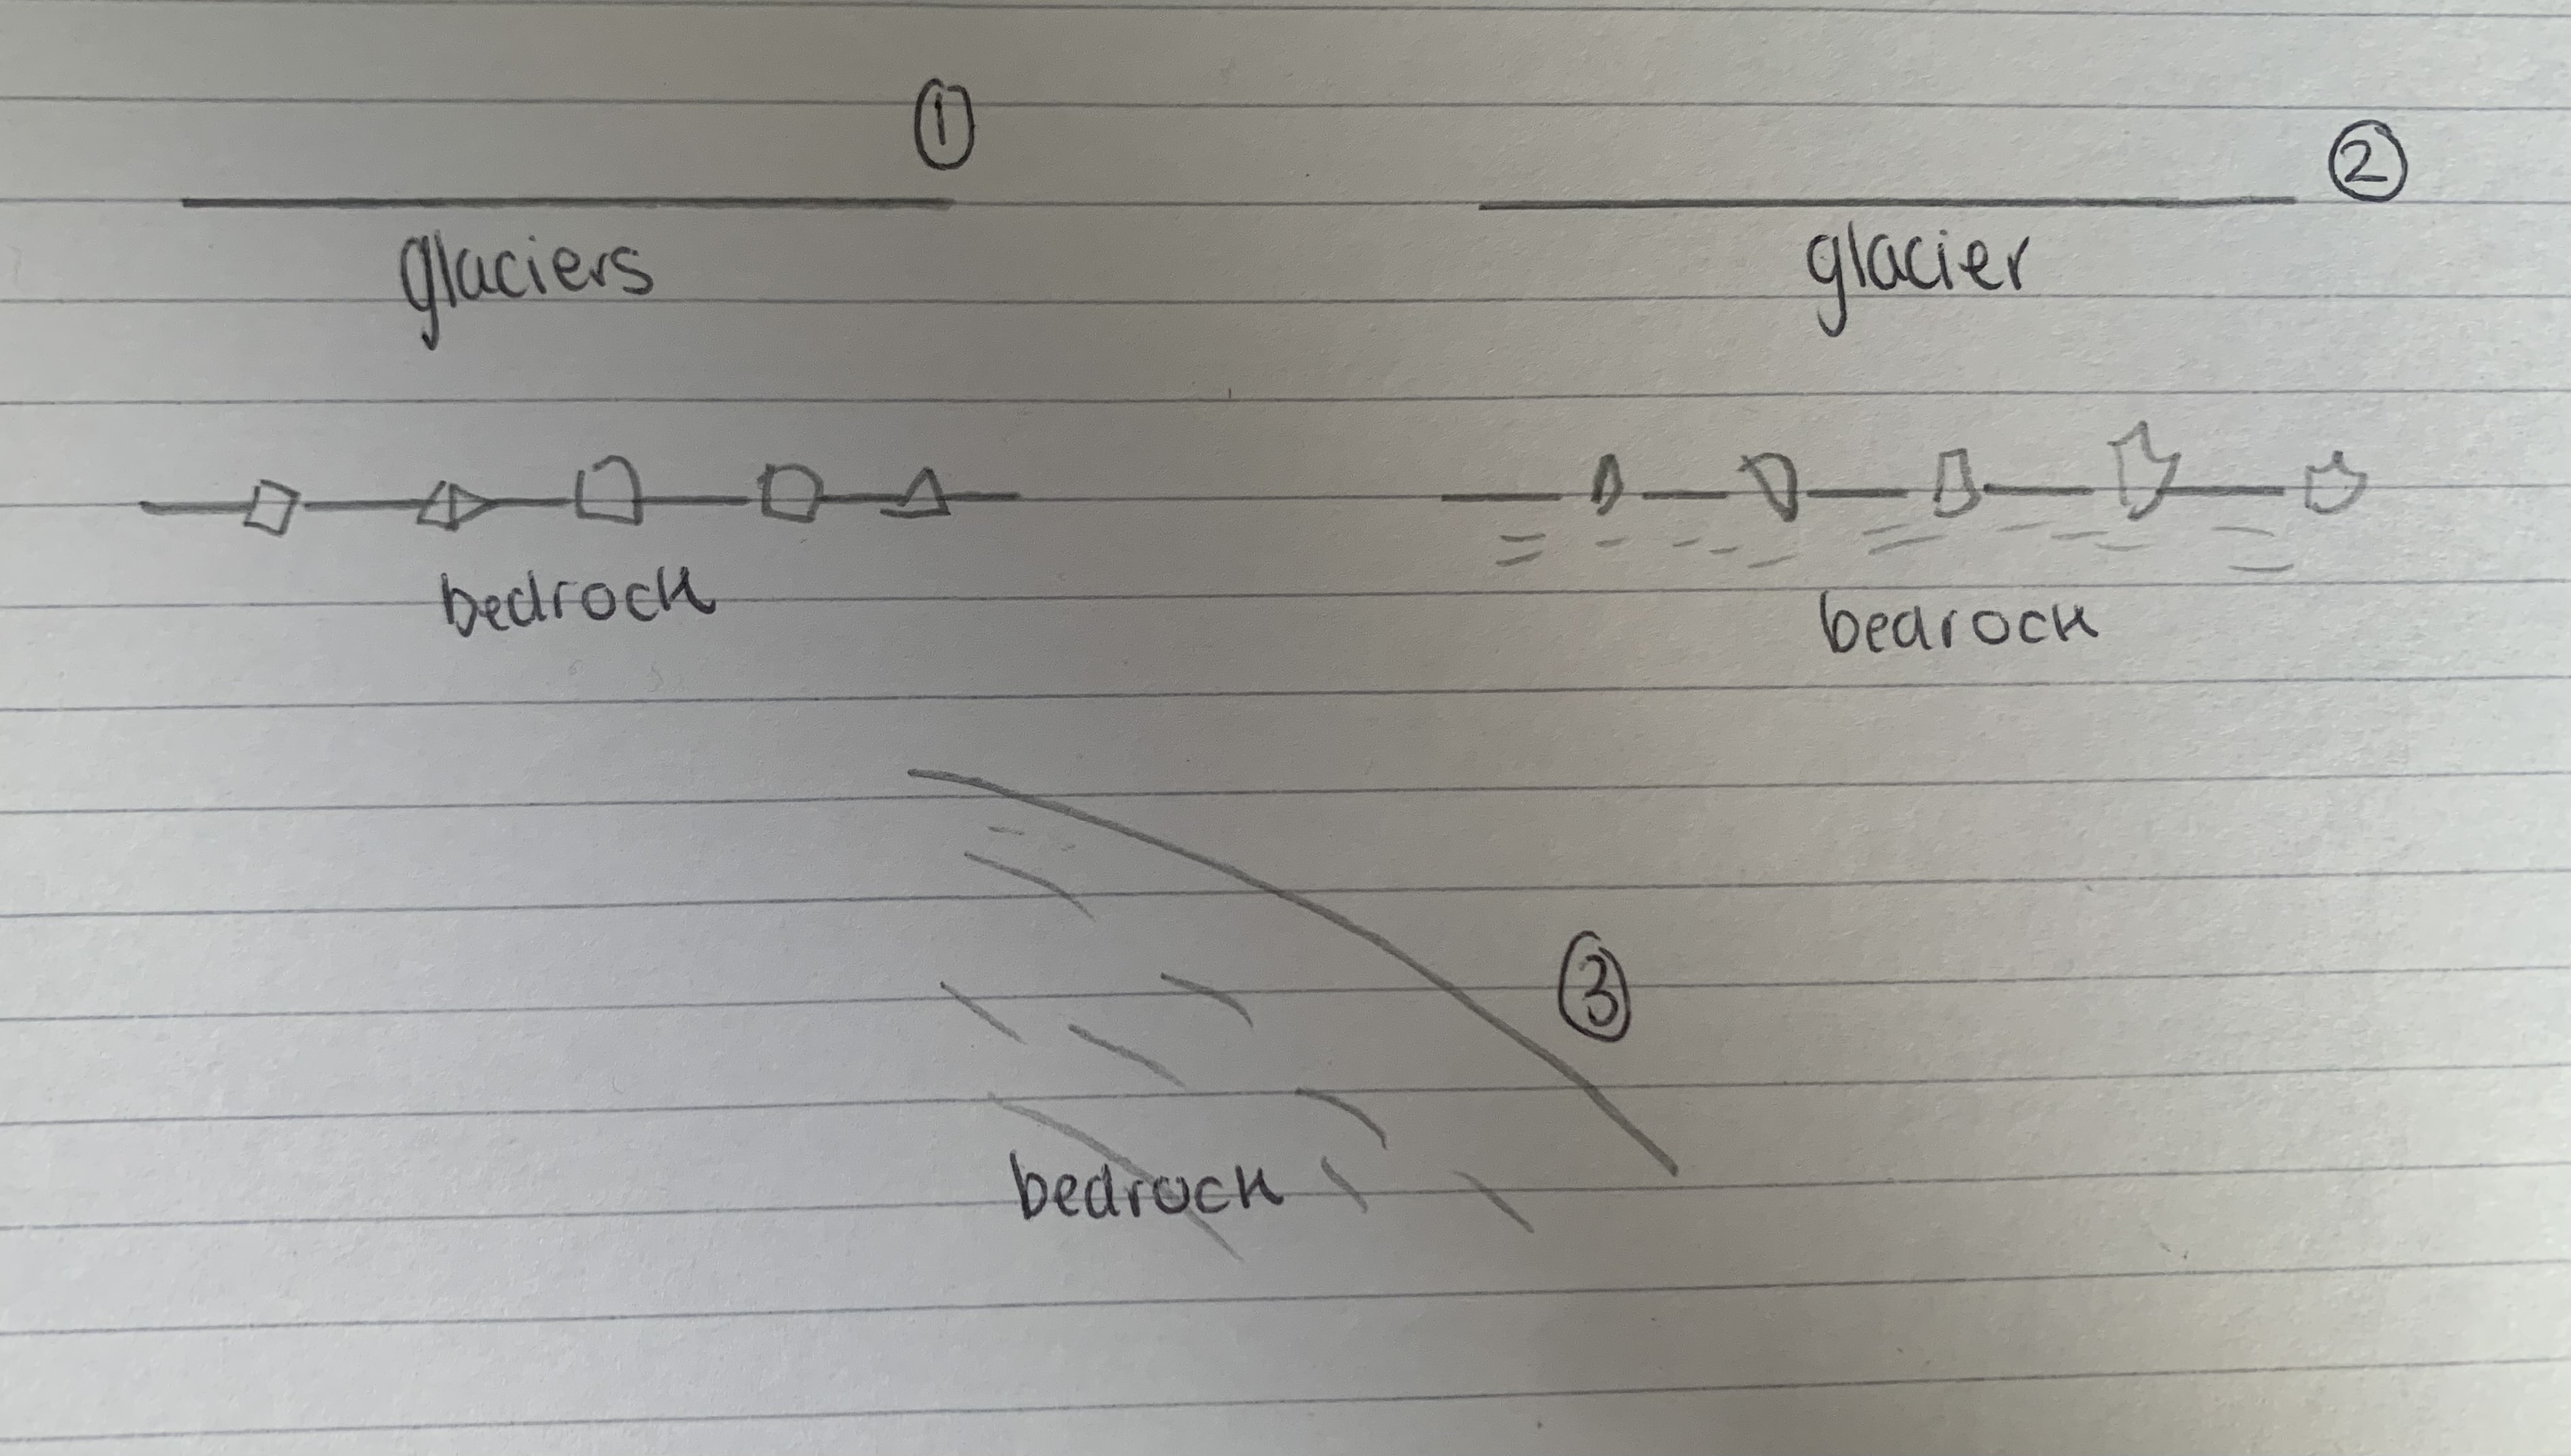 ①
②
glaciers
glacier
bedrock
bedrock
③
bedrock